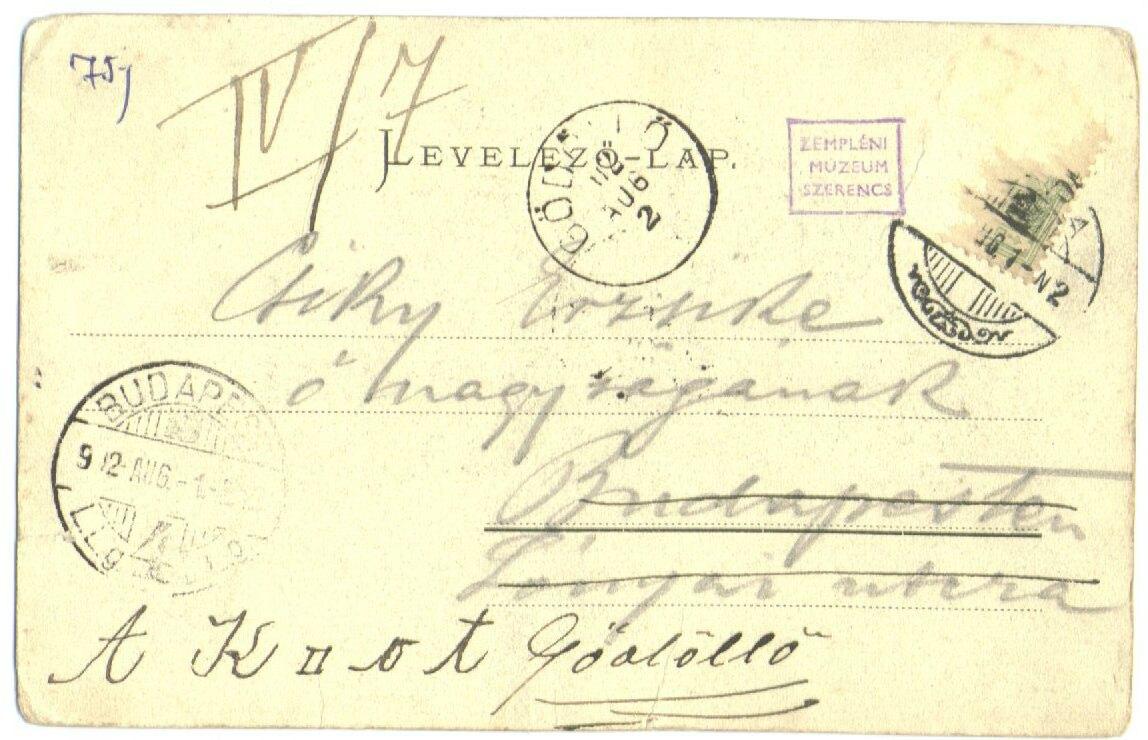 75j
IV/7
LEVELEZŐ-LAP.
GÖDÖLLŐ
902
AUG
2
ZEMPLÉNI
MÚZEUM
SZERENCS
Csiky Erzsike
ő nagyságának
Budapesten
Lónyai utcza
BUDAPEST
902-AUG.-1.
A K II o t Gödöllő